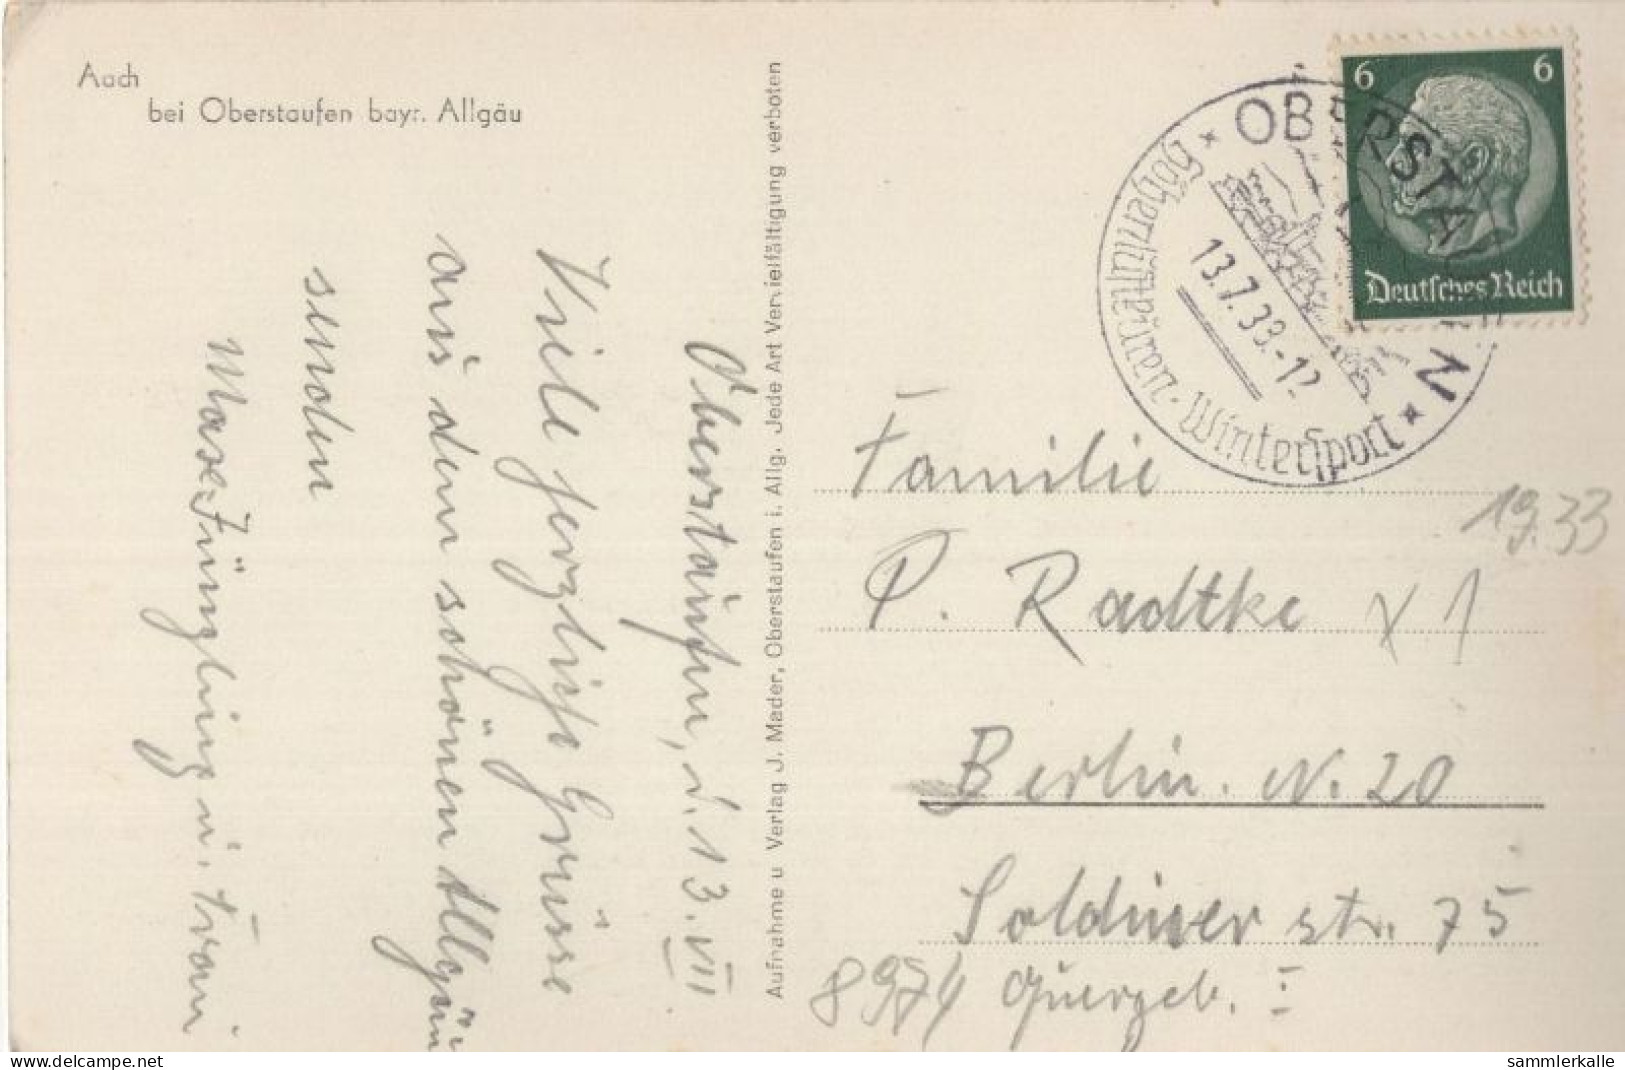 Aach
bei Oberstaufen bayr. Allgäu
Oberstaufen, d. 13. VII
Viele herzliche Grüsse
aus dem schönen Allgäu
senden
Max Jüngling u. Frau
Aufnahme u Verlag J. Mader, Oberstaufen i. Allg. Jede Art Vervielfältigung verboten
OBERSTAUFEN
13.7.33.-12
Höhenluftkuren · Wintersport
6 6
Deutsches Reich
Familie
1933
P. Radtke x 1
Berlin. N. 20
Soldiner str. 75
8974 Quergeb. I
www.delcampe.net
sammlerkalle